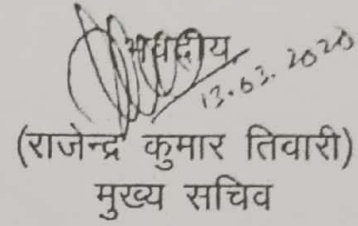 भवदीय
13.03.2020
(राजेन्द्र कुमार तिवारी)
मुख्य सचिव